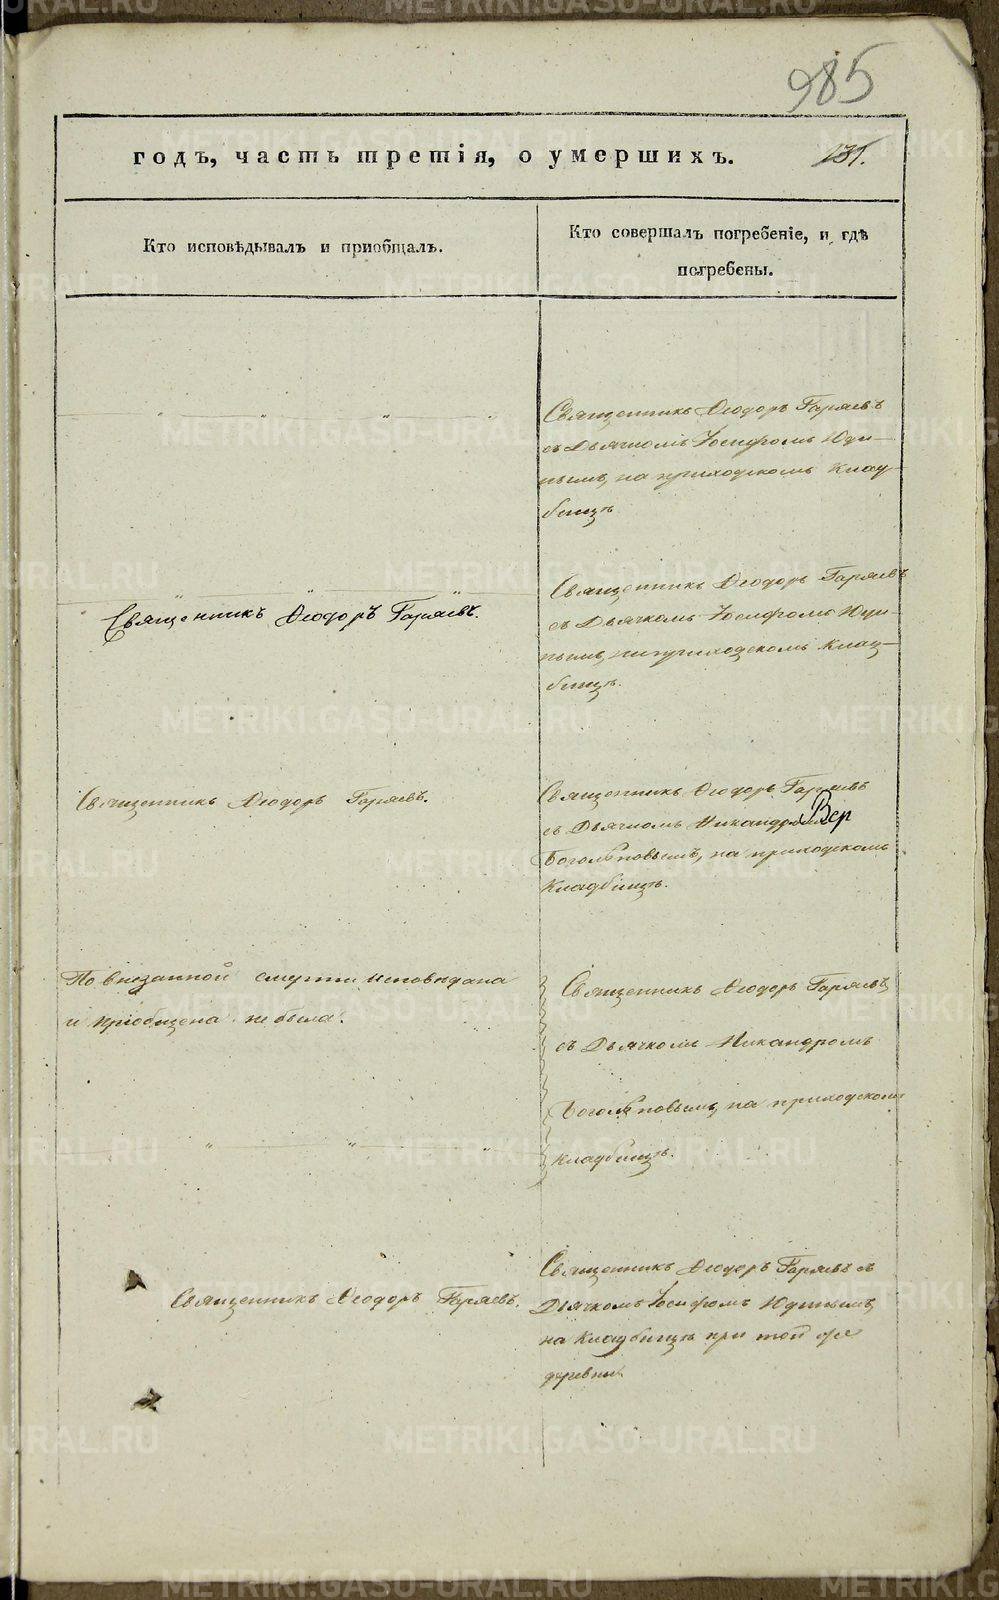 985
годъ, часть третія, о умершихъ. 131.
Кто исповѣдывалъ и пріобщалъ.
Кто совершалъ погребеніе, и гдѣ
погребены.
Священникъ Ѳеодоръ Гаряевъ
съ Дьячкомъ Іосифомъ Юди-
нымъ, на приходскомъ клад-
бищѣ
Священникъ Ѳеодоръ Гаряевъ.
Священникъ Ѳеодоръ Гаряевъ
съ Дьячкомъ Іосифомъ Юди-
нымъ, на приходскомъ клад-
бищѣ.
Священникъ Ѳеодоръ Гаряевъ.
Священникъ Ѳеодоръ Гаряевъ
съ Дьячкомъ Никандромъ Вер
Боголѣповымъ, на приходскомъ
кладбищѣ.
По внезапной смерти исповѣдана
и пріобщена не была.
Священникъ Ѳеодоръ Гаряевъ,
съ Дьячкомъ Никандромъ
Боголѣповымъ, на приходскомъ
кладбищѣ.
Священникъ Ѳеодоръ Гаряевъ.
Священникъ Ѳеодоръ Гаряевъ съ
Дьячкомъ Іосифомъ Юдинымъ,
на кладбищѣ при той же
деревни
METRIKI.GASO-URAL.RU